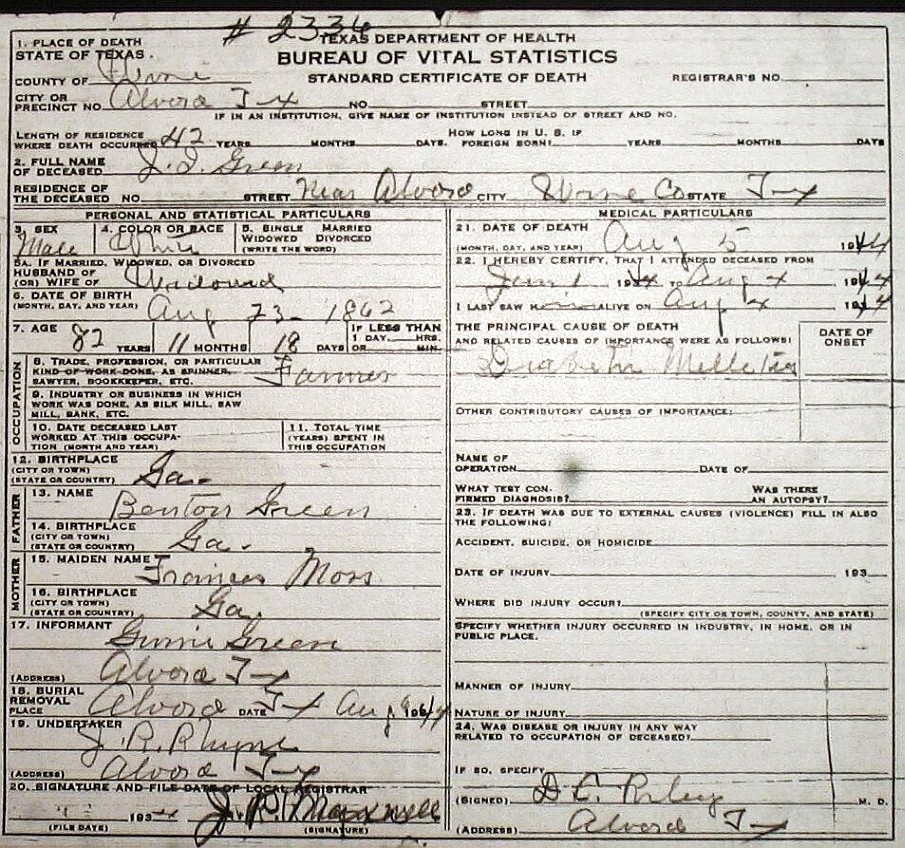 # 2336
TEXAS DEPARTMENT OF HEALTH
BUREAU OF VITAL STATISTICS
STANDARD CERTIFICATE OF DEATH
REGISTRAR'S NO.
1. PLACE OF DEATH
STATE OF TEXAS.
COUNTY OF Wise
CITY OR PRECINCT NO. Alvord Tex NO. STREET
IF IN AN INSTITUTION, GIVE NAME OF INSTITUTION INSTEAD OF STREET AND NO.
LENGTH OF RESIDENCE WHERE DEATH OCCURRED 42 YEARS MONTHS DAYS. HOW LONG IN U. S. IF FOREIGN BORN? YEARS MONTHS DAYS
2. FULL NAME OF DECEASED J. I. Green
RESIDENCE OF THE DECEASED NO. STREET Near Alvord CITY Wise Co STATE Tex
PERSONAL AND STATISTICAL PARTICULARS
3. SEX Male
4. COLOR OR RACE White
5. SINGLE MARRIED WIDOWED DIVORCED (WRITE THE WORD)
5A. IF MARRIED, WIDOWED, OR DIVORCED
HUSBAND OF (OR) WIFE OF Widowed
6. DATE OF BIRTH (MONTH, DAY, AND YEAR) Aug 23 - 1862
7. AGE 82 YEARS 11 MONTHS 18 DAYS IF LESS THAN 1 DAY HRS. OR MIN.
OCCUPATION
8. TRADE, PROFESSION, OR PARTICULAR KIND OF WORK DONE, AS SPINNER, SAWYER, BOOKKEEPER, ETC. Farmer
9. INDUSTRY OR BUSINESS IN WHICH WORK WAS DONE, AS SILK MILL, SAW MILL, BANK, ETC.
10. DATE DECEASED LAST WORKED AT THIS OCCUPATION (MONTH AND YEAR)
11. TOTAL TIME (YEARS) SPENT IN THIS OCCUPATION
12. BIRTHPLACE (CITY OR TOWN) (STATE OR COUNTRY) Ga.
FATHER
13. NAME Benton Green
14. BIRTHPLACE (CITY OR TOWN) (STATE OR COUNTRY) Ga.
MOTHER
15. MAIDEN NAME Frances Moss
16. BIRTHPLACE (CITY OR TOWN) (STATE OR COUNTRY) Ga.
17. INFORMANT Green
(ADDRESS) Alvord Tex
18. BURIAL REMOVAL PLACE Alvord Tex DATE Aug 1944
19. UNDERTAKER J. R. Rhyne
(ADDRESS) Alvord Tex
20. SIGNATURE AND FILE DATE OF LOCAL REGISTRAR
193 J. R. Maxwell
(FILE DATE) (SIGNATURE)
MEDICAL PARTICULARS
21. DATE OF DEATH (MONTH, DAY, AND YEAR) Aug 5 1944
22. I HEREBY CERTIFY, THAT I ATTENDED DECEASED FROM
1944 TO Aug 4 1944
I LAST SAW ALIVE ON Aug 4 1944
THE PRINCIPAL CAUSE OF DEATH AND RELATED CAUSES OF IMPORTANCE WERE AS FOLLOWS:
DATE OF ONSET
Diabetes Mellitus
OTHER CONTRIBUTORY CAUSES OF IMPORTANCE:
NAME OF OPERATION DATE OF
WHAT TEST CONFIRMED DIAGNOSIS? WAS THERE AN AUTOPSY?
23. IF DEATH WAS DUE TO EXTERNAL CAUSES (VIOLENCE) FILL IN ALSO THE FOLLOWING:
ACCIDENT, SUICIDE, OR HOMICIDE
DATE OF INJURY 193
WHERE DID INJURY OCCUR?
(SPECIFY CITY OR TOWN, COUNTY, AND STATE)
SPECIFY WHETHER INJURY OCCURRED IN INDUSTRY, IN HOME, OR IN PUBLIC PLACE.
MANNER OF INJURY
NATURE OF INJURY
24. WAS DISEASE OR INJURY IN ANY WAY RELATED TO OCCUPATION OF DECEASED?
IF SO, SPECIFY
(SIGNED) D. C. Riley M. D.
(ADDRESS) Alvord Tex